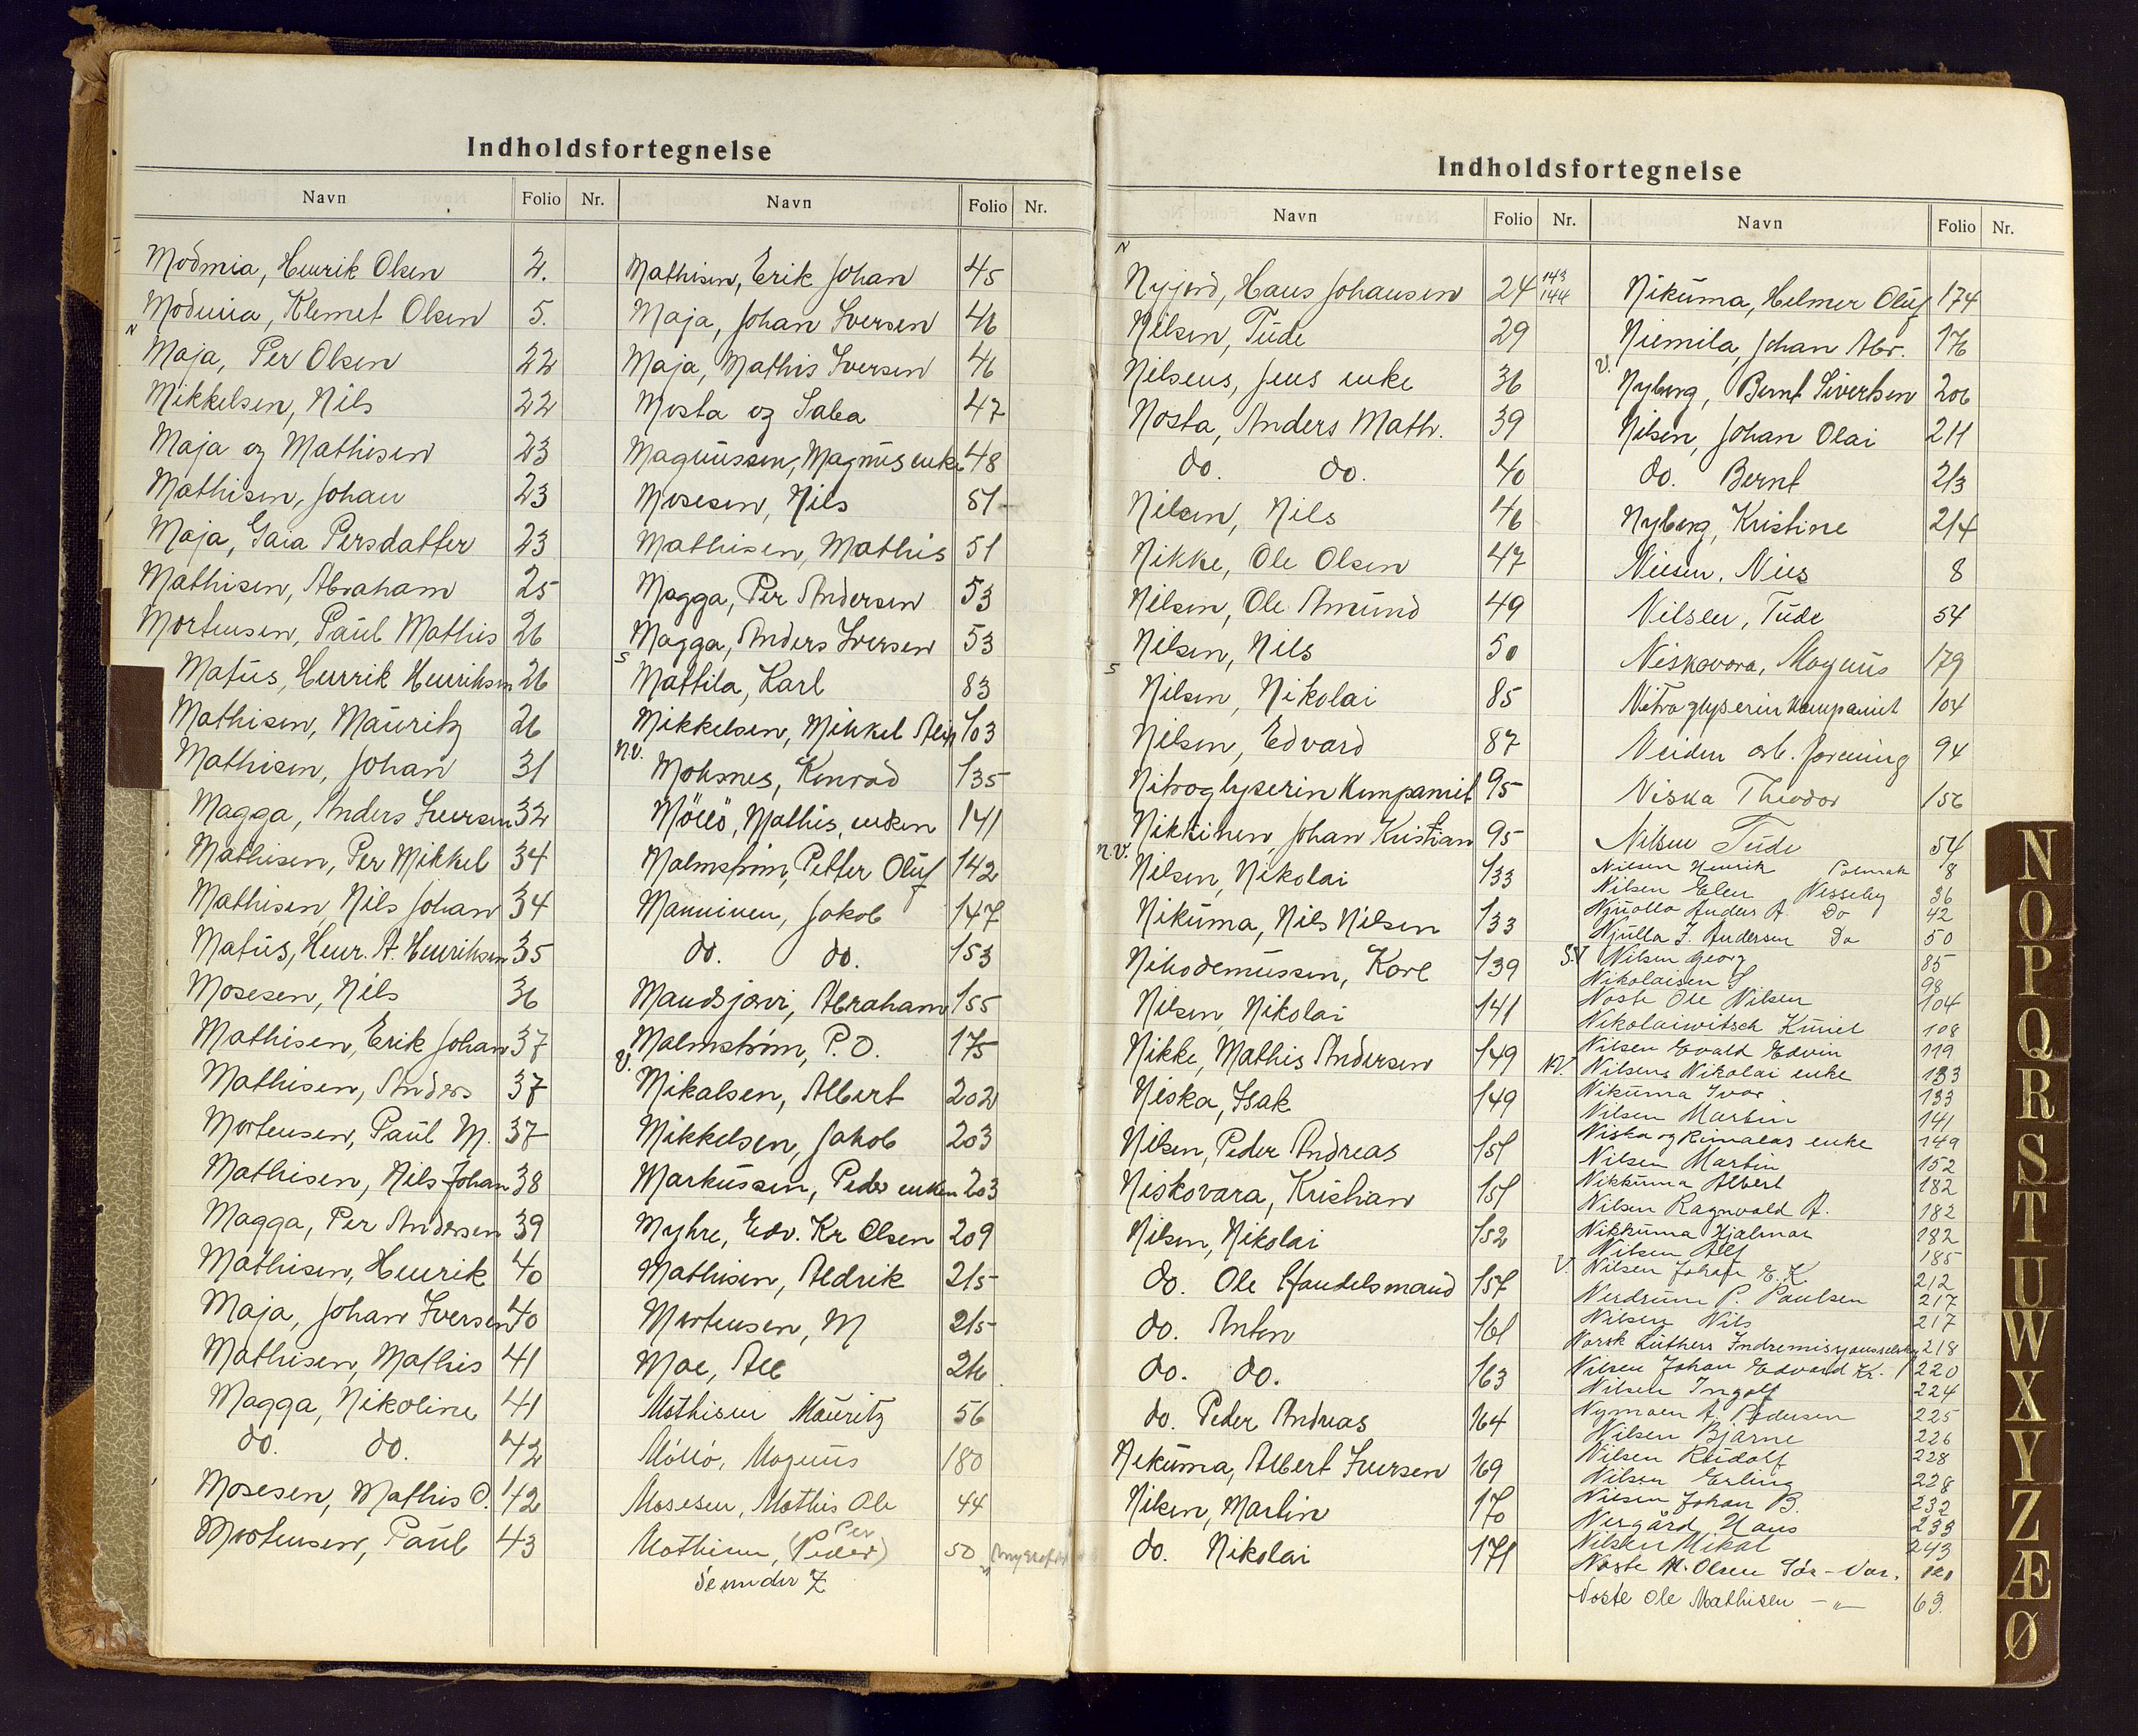 Indholdsfortegnelse
Navn Folio Nr. Navn Folio Nr.
Modmia, Henrik Olsen 2.
Moduiia, Klemet Olsen 5.
N
Maja, Per Olsen 22
Mikkelsen, Nils 22
Maja og Mathisen 23
Mathisen, Johan 23
Maja, Gaia Persdatter 23
Mathisen, Abraham 25
Mortensen, Paul Mathis 26
Matus, Henrik Henriksen 26
Mathisen, Mauritz 26
Mathisen, Johan 31
Magga, Anders Iversen 32
Mathisen, Per Mikkel 34
Mathisen, Nils Johan 34
Matus, Henr. A. Henriksen 35
Mosesen, Nils 36
Mathisen, Erik Johan 37
Mathisen, Anders 37
Mortensen, Paul M. 37
Mathisen, Nils Johan 38
Magga, Per Andersen 39
Mathisen, Henrik 40
Maja, Johan Iversen 40
Mathisen, Mathis 41
Magga, Nikoline 41
do. do. 42
Mosesen, Mathis O. 42
Mortensen, Paul 43
Mathisen, Erik Johan 45
Maja, Johan Iversen 46
Maja, Mathis Iversen 46
Mosta og Saba 47
Magnussen, Magnus enke 48
Mosesen, Nils 51
Mathisen, Mathis 51
Magga, Per Andersen 53
Magga, Anders Iversen 53
S
Mattila, Karl 83
Mikkelsen, Mikkel 103
N.V.
Mohsnes, Konrad 135
Möllö, Mathis, enken 141
Malmström, Petter Oluf 142
Manninen, Jakob 147
do. do. 153
Mandsjarvi, Abraham 155
Malmström, P.O. 175
V.
Mikalsen, Albert 202
Mikkelsen, Jakob 203
Markussen, Peder enken 203
Myhre, Edv. Kr Olsen 209
Mathisen, Aldrik 215
Mortensen, M 215
Moe, All 216
Mathisen Mauritz 56
Möllö, Magnus 180
Mosesen, Mathis Ole 44
Per
Mathisen, (Peder) 50
Se under Z
Indholdsfortegnelse
Navn Folio Nr. Navn Folio Nr.
N
Nyjord, Hans Johansen 24 143 144
Nilsen, Tude 29
Nilsens, Jens enke 36
Nosta, Anders Math. 39
do. do. 40
Nilsen, Nils 46
Nikke, Ole Olsen 47
Nilsen, Ole Amund 49
Nilsen, Nils 50
S
Nilsen, Nikolai 85
Nilsen, Edvard 87
Nitroglyserin Kompaniet 95
Nikkinen, Johan Kristian 95
N.V.
Nilsen, Nikolai 133
Nikuma, Nils Nilsen 133
Nikodemussen, Karl 139
Nilsen, Nikolai 141
Nikke, Mathis Andersen 149
Niska, Isak 149
Nilsen, Peder Andreas 151
Niskovara, Kristian 151
Nilsen, Nikolai 152
do. Ole Handelsmand 157
do. Anton 161
do. do. 163
do. Peder Andreas 164
Nikuma, Albert Iversen 169
Nilsen, Martin 170
do. Nikolai 171
Nikuma, Helmer Oluf 174
Niemila, Johan Abr. 176
V.
Nyberg, Bernt Sivertsen 206
Nilsen, Johan Olai 211
do. Bernt 213
Nyberg, Kristine 214
Nilsen, Nils 8
Nilsen, Tude 54
Niskavara, Magnus 179
Nitroglyserin Kompaniet 104
Neiden arb. forening 94
Niska Theodor 156
Nilsen Tude 54
Nilsen Henrik Polmak 18
Nilsen Elen Nesseby 36
Njuolla Anders A. Do 42
Njulla J. Andersen Do 50
S.V Nilsen Georg 85
Nikolaisen S 98
Noste Ole Nilsen 104
Nikolaiwitsch Kiriel 108
Nilsen Evald Edvin 119
N.V. Nilsens Nikolai enke 133
Nikuma Ivar 133
Nilsen Martin 141
Niska og enke 149
Nilsen Martin 152
Nikkuma Albert 182
Nilsen Ragnvald A. 182
Nikkuma Hjalmar 182
Nilsen Alf 185
V. Nilsen Johan E.K. 212
Nerdrum P. Paulsen 217
Nilsen Nils 217
Norsk Luthers Indremisjonsselskap 218
Nilsen Johan Edvard Kr. 220
Nilsen Ingolf 224
Nymoen A. Pedersen 225
Nilsen Bjarne 226
Nilsen Rudolf 228
Nilsen Erling 228
Nilsen Johan B. 232
Nergård Hans 233
Nilsen Mikal 243
Noste M. Olsen Sör-Var. 121
Noste Ole Mathisen -"- 63.
N
O
P
Q
R
S
T
U
W
X
Y
Z
Æ
Ø